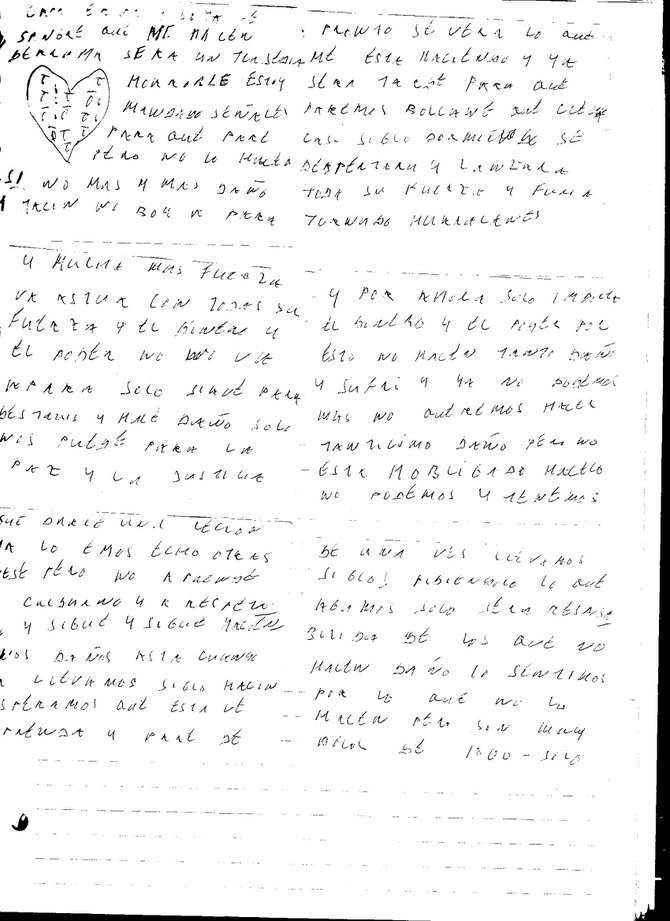 SEÑORE QUE ME HACEN
DERRAMA SERA UN
HORRORLE ESTOY
MANDADO SEÑALES
PARA QUE PARE
PERO NO LO HACEN
SI NO MAS Y MAS DAÑO
Y HACEN NO BOY A PARA
Y MUCHA MAS FUERZA
VA ASTUA CON TODAS SU
FUERZA Y EL DINERO Y
EL PODER NO NO VA
APARA SOLO SIRVE PARA
DESTRUIS Y HACE DAÑO SOLO
NOS PUEDE PARA LA
PAZ Y LA JUSTICIA
QUE DARLE UNA LECION
YA LO EMOS ECHO OTRAS
BESE PERO NO APRENDE
CUIDARNO Y A RESPETA
Y SIGUE Y SIGUE HACEN
NOS DAÑOS ASTA CUANDO
LLEVAMOS SIGLO HACIEN
SPERAMOS QUE ESTA VE
PRENDA Y PARE DE
PRONTO SE VERA LO QUE
ME ESTA HACIENDO Y YA
SERA TARDE PARA QUE
PAREMOS BOLCANE QUE LLEVA
CASI SIGLO DORMIENDO SE
DESPERTARA Y LANZARA
TODA SU FUERZA Y FURIA
TORNADO HURRACANES
Y POR AHORA SOLO IMPORTA
EL DINERO Y EL PODER POR
ESTO NO HACEN TANTO DAÑO
Y SUFRI Y YA NO PODEMOS
MAS NO QUEREMOS HACER
TANTICIMO DAÑO PERO NO
ESTA HOBLIGADO HACELO
NO PODEMOS Y SENTIMOS
DE UNA VES LLEVAMOS
SIGLOS PIDIENDOLO LO QUE
HAGAMOS SOLO SERA RESPONSA
BILIDA DE LOS QUE NO
HACEN DAÑO LO SENTIMOS
POR LO QUE NO LO
HACEN PERO SON MUY
POCO DE 1000 - SOLO